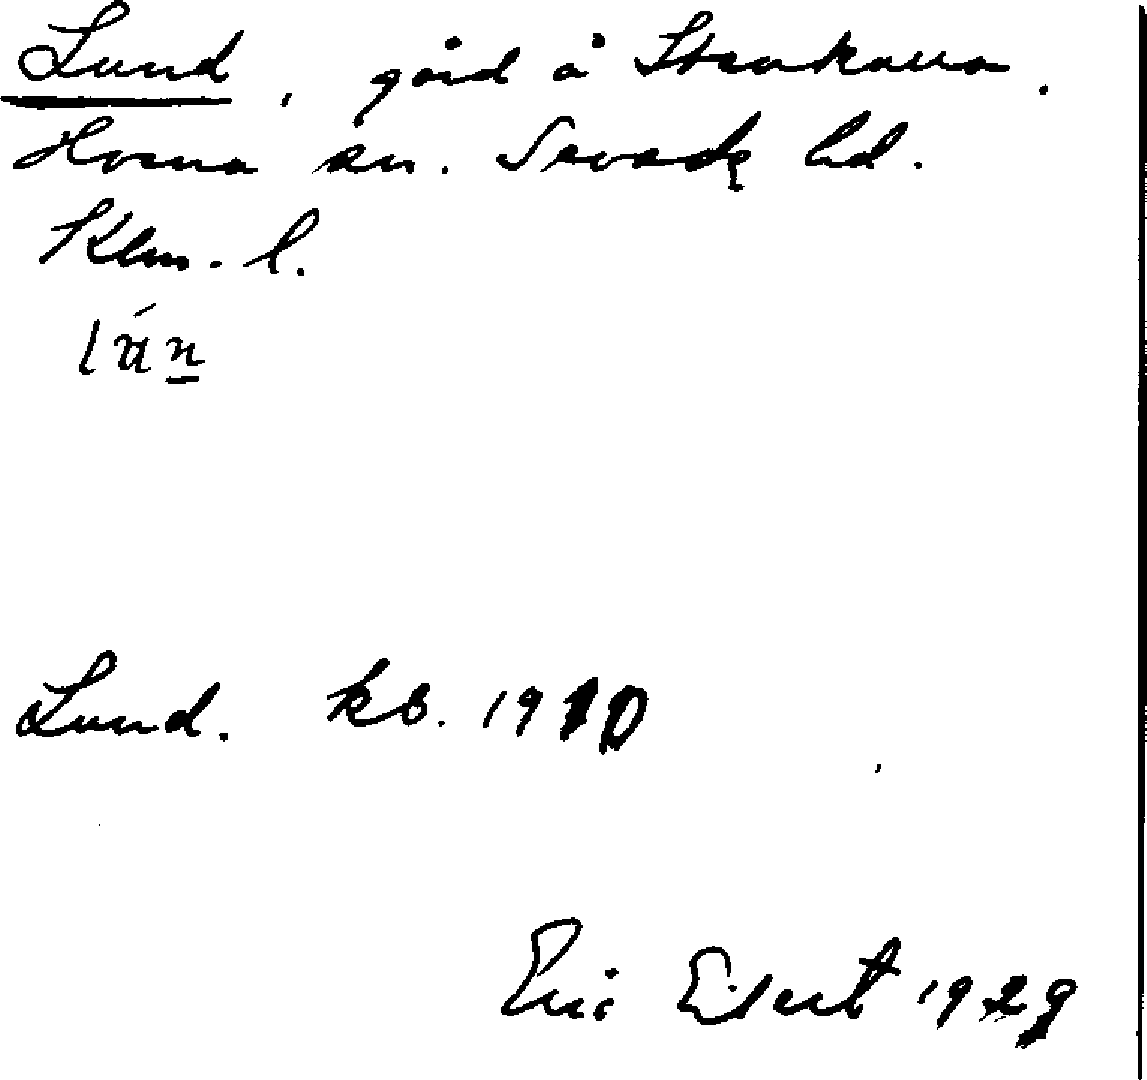 Lund, gård å Stenkulla.
Hvena sn. Sevede hd.
Klm. l.
Lund. kb. 1910
Eric Elsert 1929